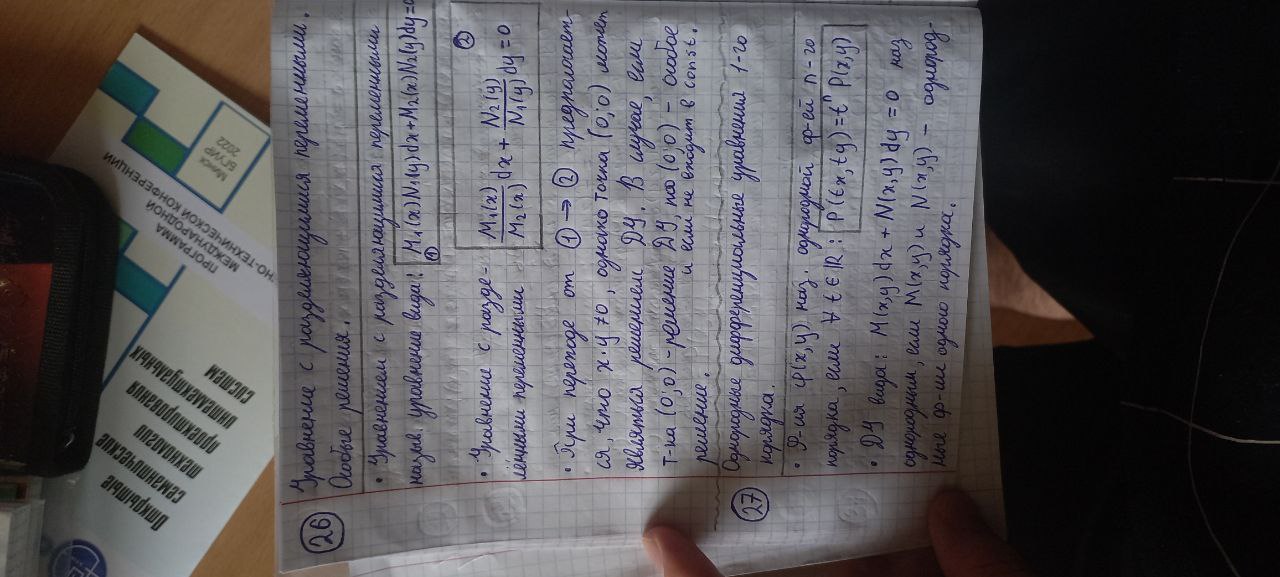 26
Уравнение с разделяющимися переменными.
Особые решения.
• Уравнением с разделяющимися переменными
назыв. уравнение вида: M₁(x)N₁(y)dx+M₂(x)N₂(y)dy=0
①
• Уравнение с разде-
лёнными переменными
M₁(x)/M₂(x) dx + N₂(y)/N₁(y) dy = 0
②
• При переходе от ① → ② предполагает-
ся, что x·y≠0, однако точка (0;0) может
являться решением ДУ. В случае, если
т-ка (0;0) - решение ДУ, то (0;0) - особое
решение. и если не входит в const.
27
Однородные дифференциальные уравнения 1-го
порядка.
• Ф-ия φ(x,y) наз. однородной ф-ей n-го
порядка, если ∀ t ∈ ℝ: P(tx,ty)=tⁿ P(x,y)
• ДУ вида: M(x,y)dx + N(x,y)dy = 0 наз
однородным, если M(x,y) и N(x,y) - однород-
ные ф-ии одного порядка.
Открытые
семантические
технологии
проектирования
интеллектуальных
систем
ПРОГРАММА
МЕЖДУНАРОДНОЙ
НО-ТЕХНИЧЕСКОЙ КОНФЕРЕНЦИИ
Минск
БГУИР
2022